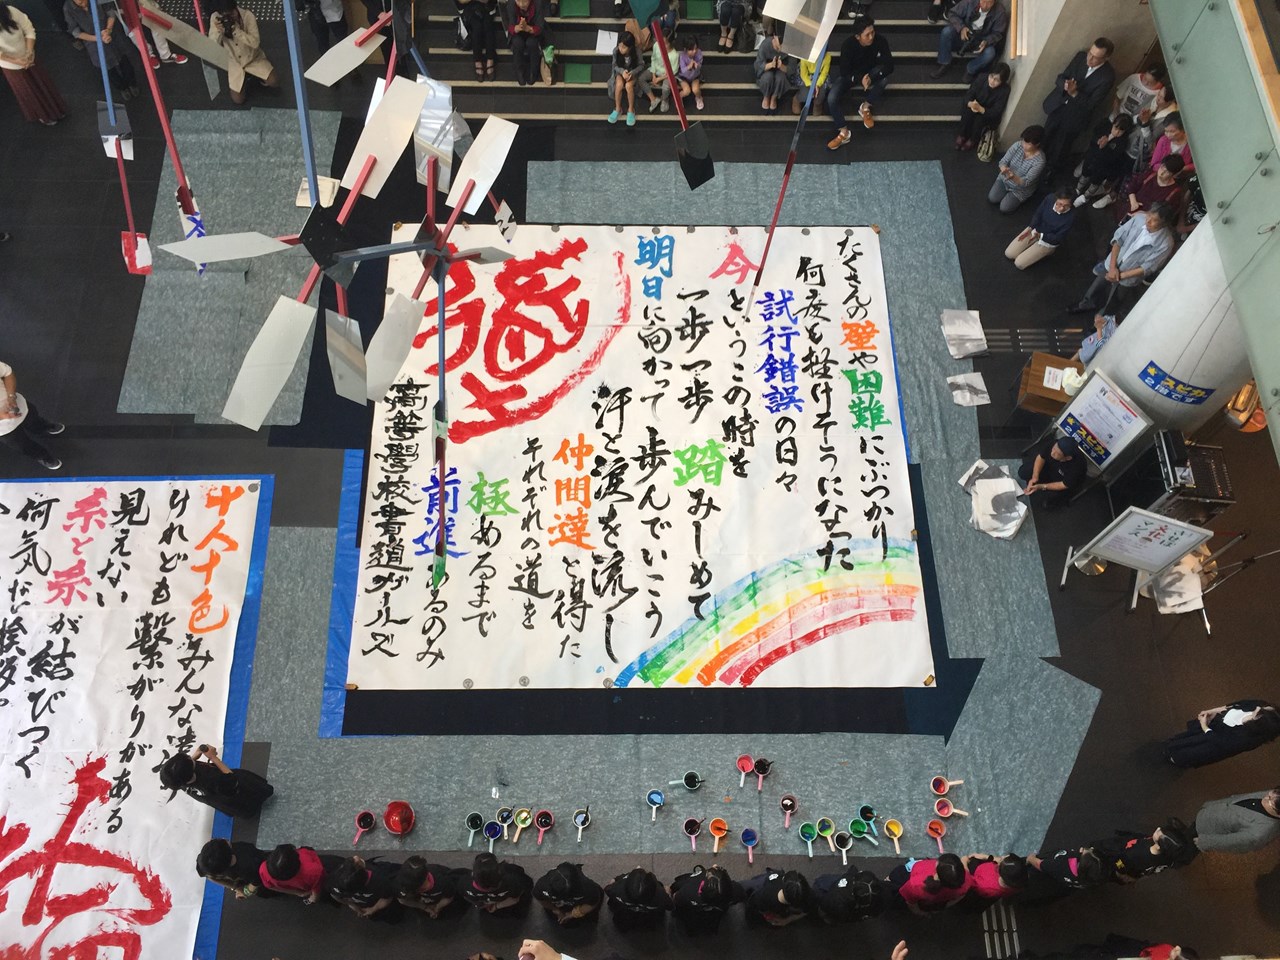 たくさんの壁や困難にぶつかり
何度も挫けそうになった
試行錯誤の日々
今というこの時を
一歩一歩踏みしめて
明日に向かって歩んでいこう
汗と涙を流し
仲間達と得た
それぞれの道を
極めるまで
前進あるのみ
高等學校書道ガールズ
道
十人十色みんな違
けれども繋がりがある
見えない
糸と糸が結びつく
何気ない挨拶
スピカ
2階です
スピカ
2階です